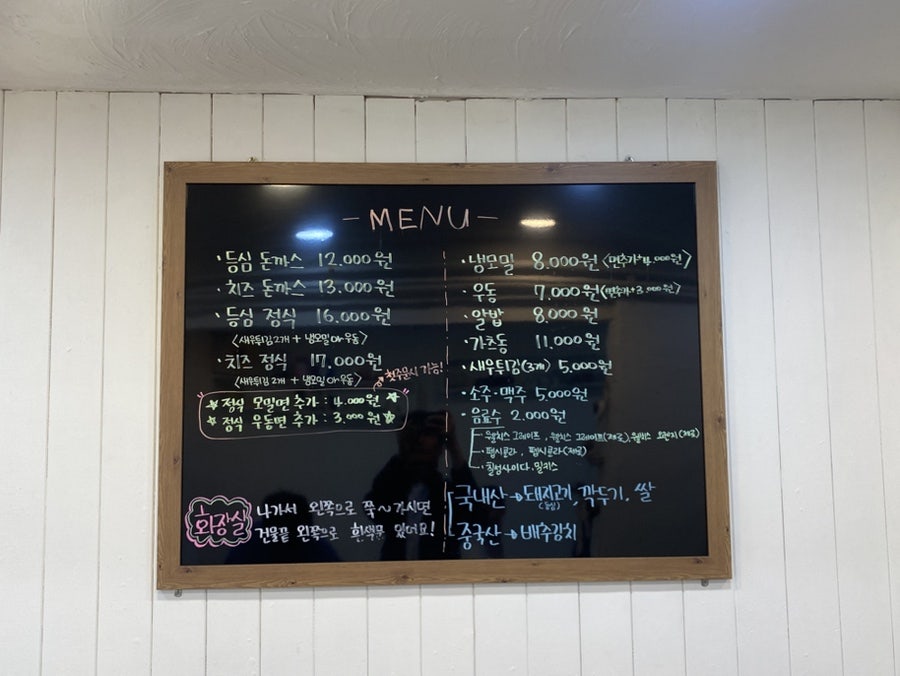 - MENU -
· 등심 돈까스 12.000원
· 치즈 돈까스 13.000원
· 등심 정식 16.000원
<새우튀김2개 + 냉모밀or우동>
· 치즈 정식 17.000원
<새우튀김 2개 + 냉모밀 or 우동>
첫주문시 가능!
☆ 정식 모밀면 추가 : 4.000원 ☆
☆ 정식 우동면 추가 : 3.000원 ☆
화장실
나가서 왼쪽으로 쭉~가시면
건물끝 왼쪽으로 흰색문 있어요!
· 냉모밀 8.000원 <면추가+4.000원>
· 우동 7.000원 (면추가+3.000원)
· 알밥 8.000원
· 가츠동 11.000원
· 새우튀김(3개) 5.000원
· 소주·맥주 5.000원
· 음료수 2.000원
웰치스 그레이프, 웰치스 그레이프(제로), 웰치스 오렌지(제로)
펩시콜라, 펩시콜라(제로)
칠성사이다, 밀키스
국내산 → 돼지고기, 깍두기, 쌀
(등심)
중국산 → 배추김치